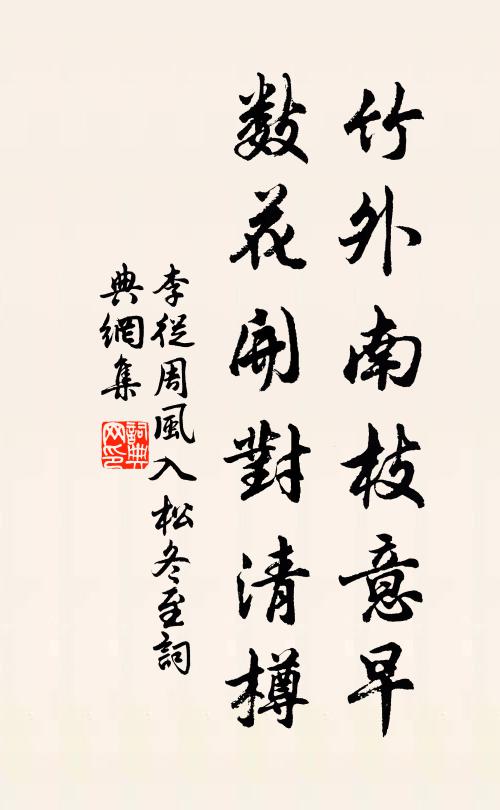 竹外南枝意早
数花開對清樽
李從周風入松冬至詞
典網集
詞典
网印